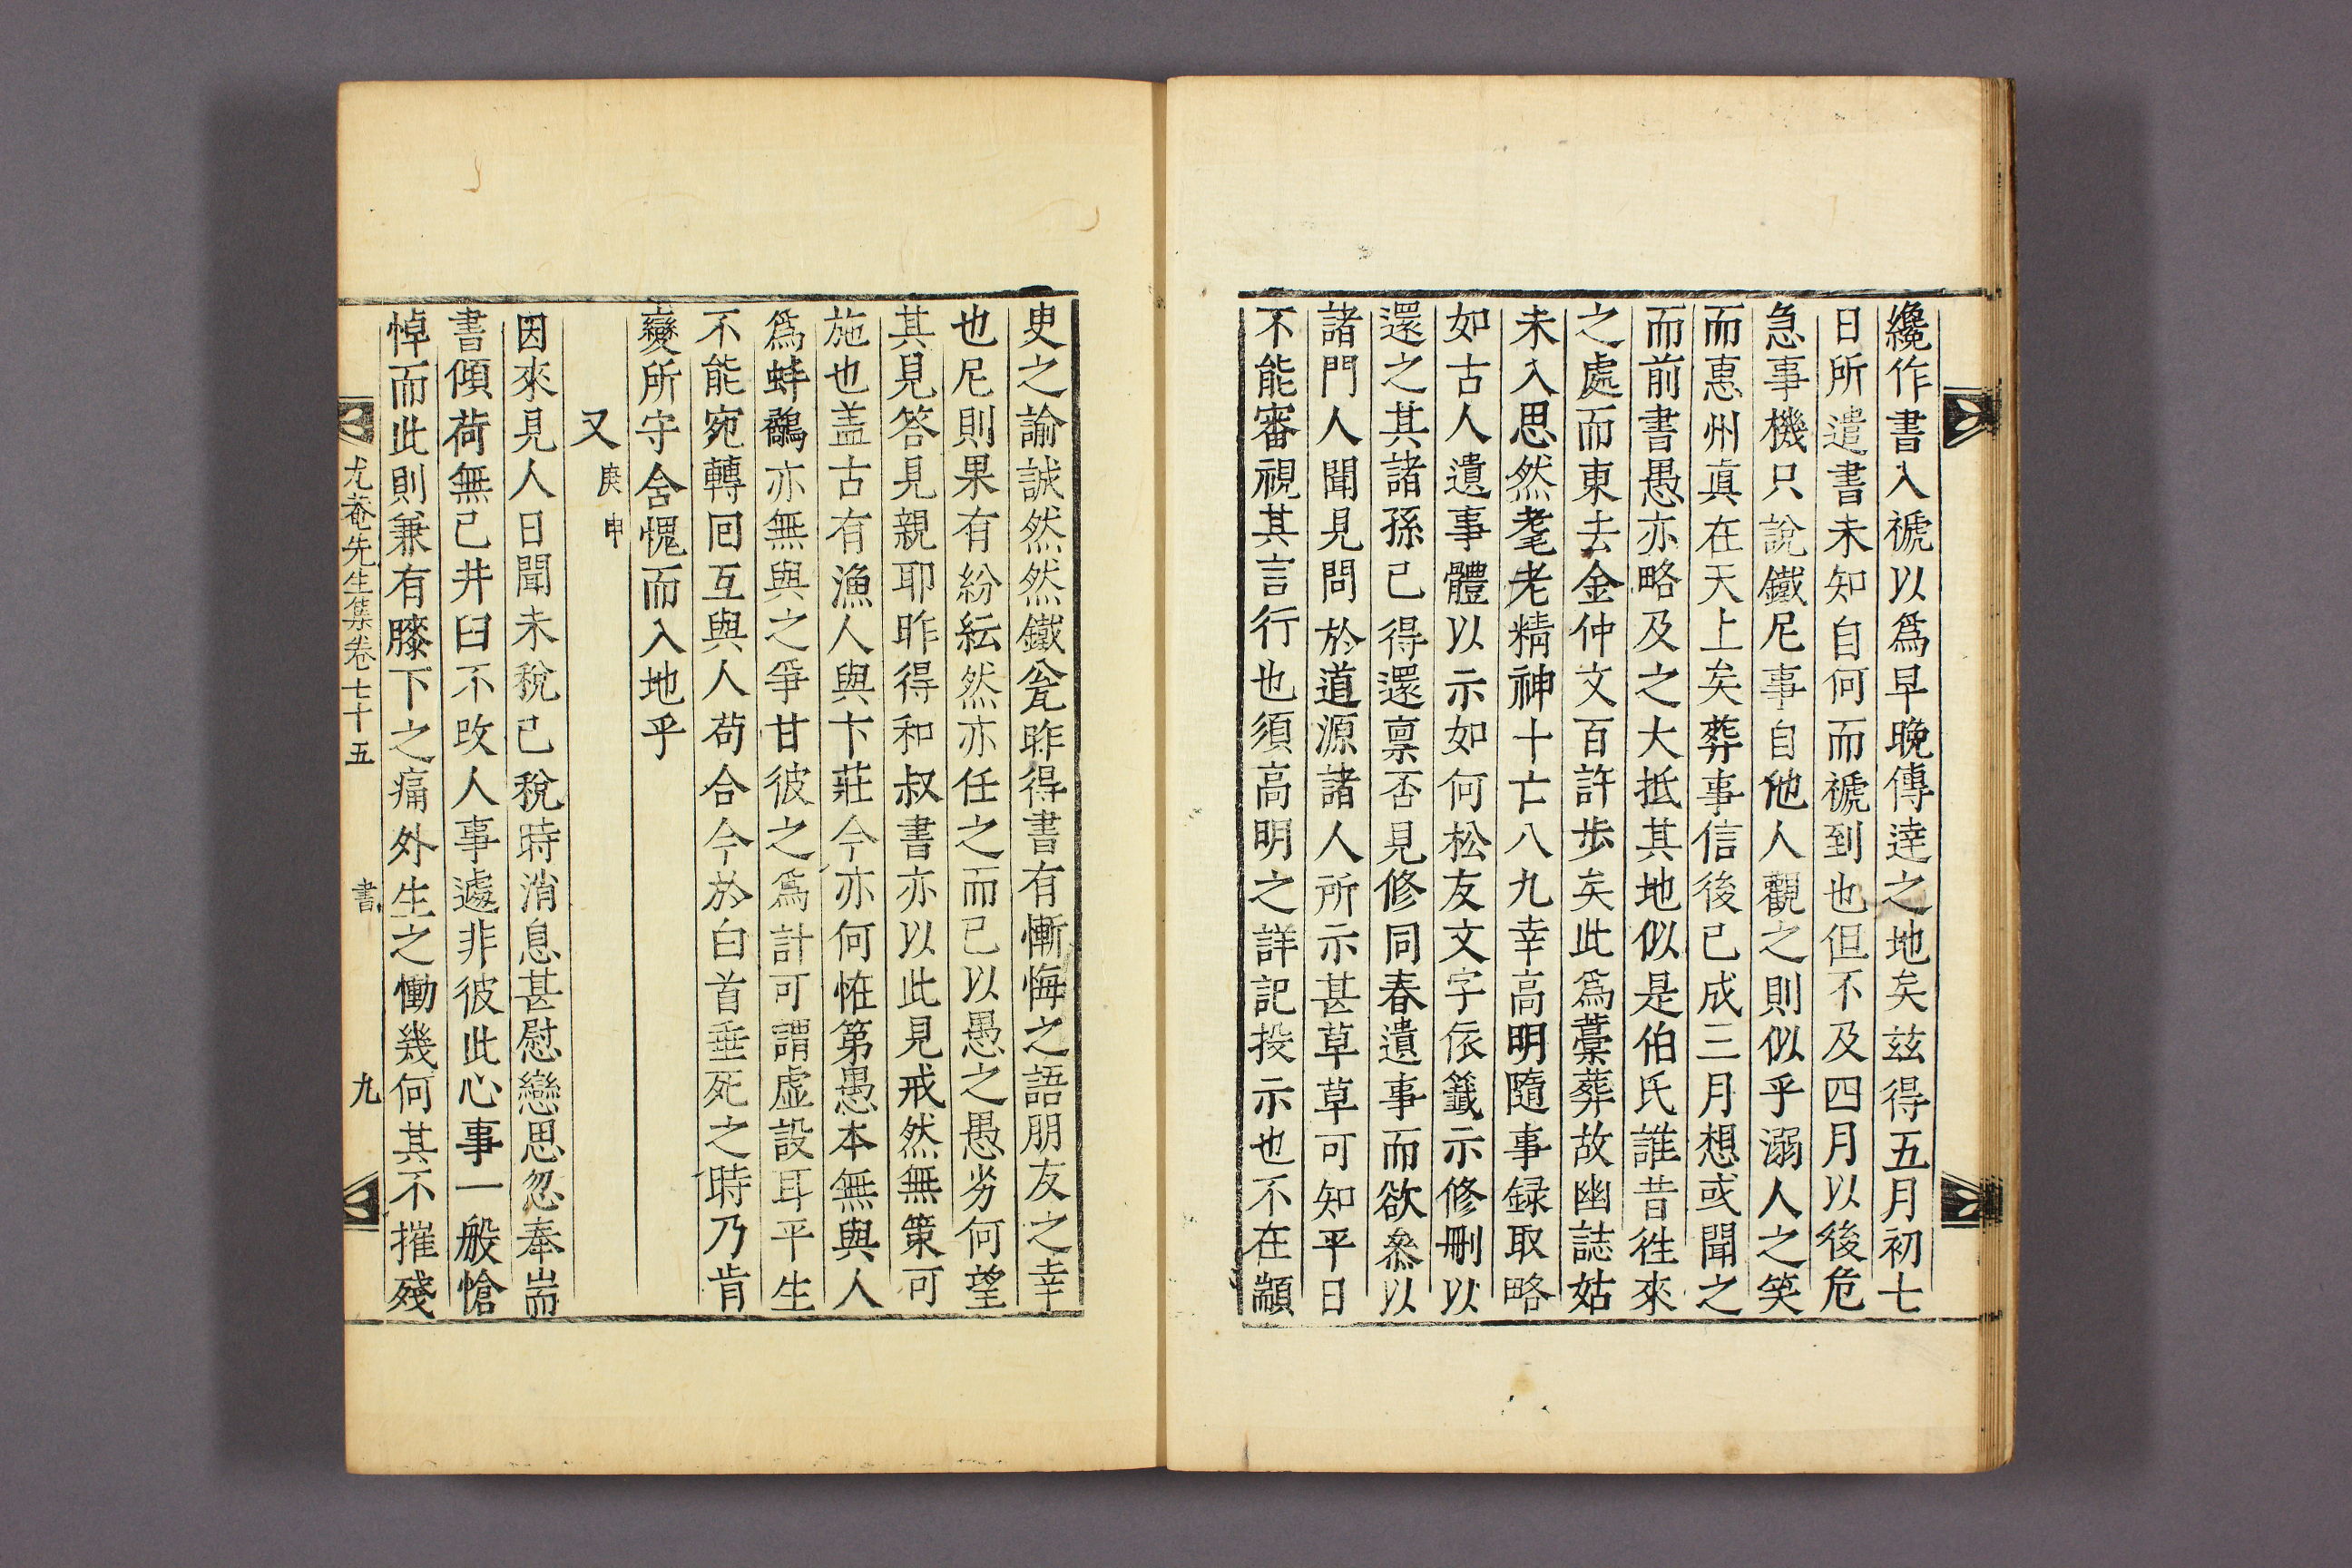 纔作書入褫以爲早晚傳達之地矣玆得五月初七
日所遣書未知自何而褫到也但不及四月以後危
急事機只說鐵尼事自他人觀之則似乎溺人之笑
而惠州眞在天上矣葬事信後已成三月想或聞之
而前書愚亦略及之大抵其地似是伯氏誰昔徃來
之處而東去金仲文百許步矣此爲藁葬故幽誌姑
未入思然耄老精神十亡八九幸高明隨事録取略
如古人遺事體以示如何松友文字依籤示修刪以
還之其諸孫已得還禀否見修同春遺事而欲叅以
諸門人聞見問於道源諸人所示甚草草可知平日
不能審視其言行也須高明之詳記投示也不在顓
史之諭誠然然鐵瓮昨得書有慚悔之語朋友之幸
也尼則果有紛紜然亦任之而已以愚之愚劣何望
其見答見親耶昨得和叔書亦以此見戒然無策可
施也盖古有漁人與卞莊今亦何恠第愚本無與人
爲蚌鷸亦無與之爭甘彼之爲計可謂虛設耳平生
不能宛轉回互與人苟合今於白首垂死之時乃肯
變所守含愧而入地乎
又庚申
因來見人日聞未稅已稅時消息甚慰戀思忽奉耑
書傾荷無已井臼不改人事遽非彼此心事一般愴
悼而此則兼有膝下之痛外生之慟幾何其不摧殘
尤菴先生集卷七十五 書 九